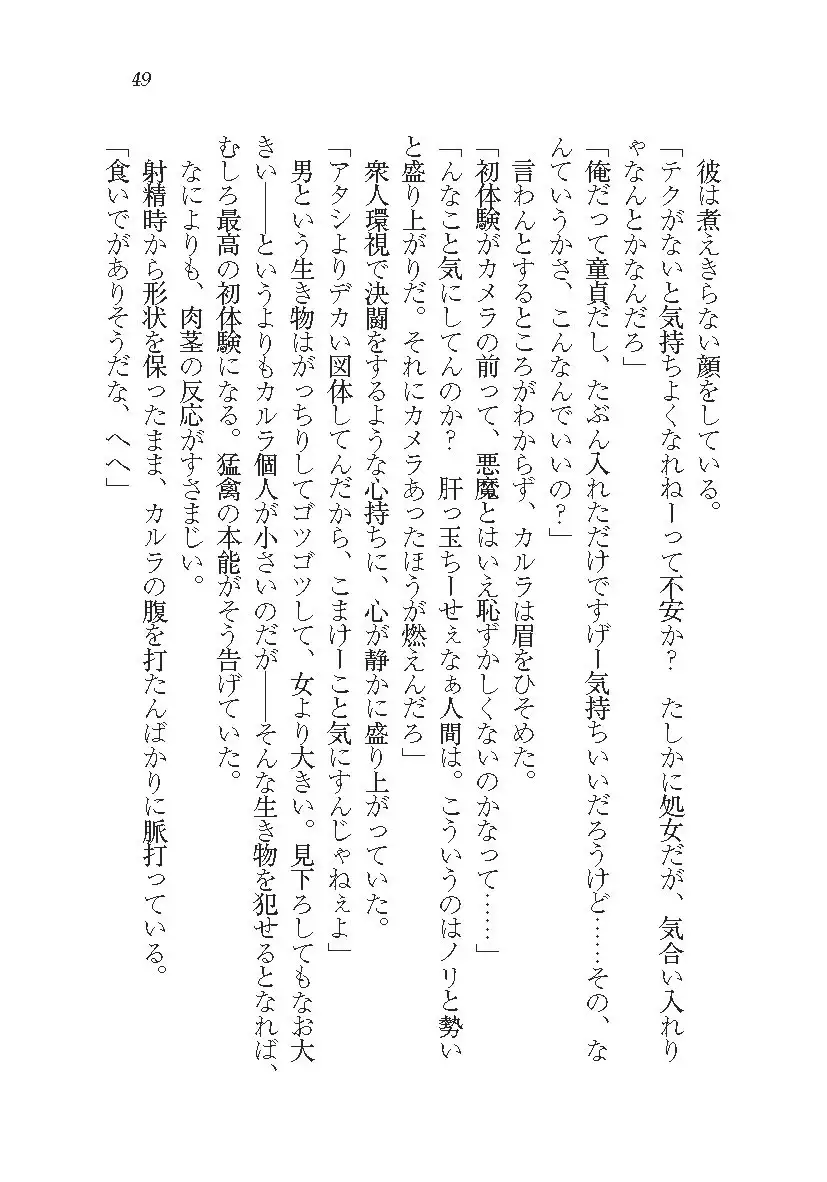 49
彼は煮えきらない顔をしている。
「テクがないと気持ちよくなれねーって不安か？　たしかに処女だが、気合い入れり
ゃなんとかなんだろ」
「俺だって童貞だし、たぶん入れただけですげー気持ちいいだろうけど……その、な
んていうかさ、こんなんでいいの？」
言わんとするところがわからず、カルラは眉をひそめた。
「初体験がカメラの前って、悪魔とはいえ恥ずかしくないのかなって……」
「んなこと気にしてんのか？　肝っ玉ちーせぇなぁ人間は。こういうのはノリと勢い
と盛り上がりだ。それにカメラあったほうが燃えんだろ」
衆人環視で決闘をするような心持ちに、心が静かに盛り上がっていた。
「アタシよりデカい図体してんだから、こまけーこと気にすんじゃねぇよ」
男という生き物はがっちりしてゴツゴツして、女より大きい。見下ろしてもなお大
きい――というよりもカルラ個人が小さいのだが――そんな生き物を犯せるとなれば、
むしろ最高の初体験になる。猛禽の本能がそう告げていた。
なによりも、肉茎の反応がすさまじい。
射精時から形状を保ったまま、カルラの腹を打たんばかりに脈打っている。
「食いでがありそうだな、へへ」